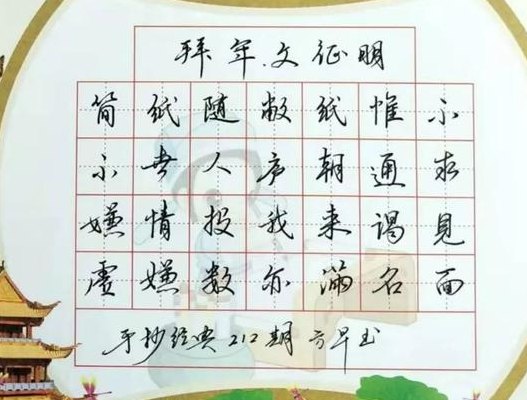 拜年.文征明
不求見面
惟通谒名
纸朝来满
敝庐我亦
随人投数
纸世情嫌
简不嫌虚
手抄经典212期 方早书